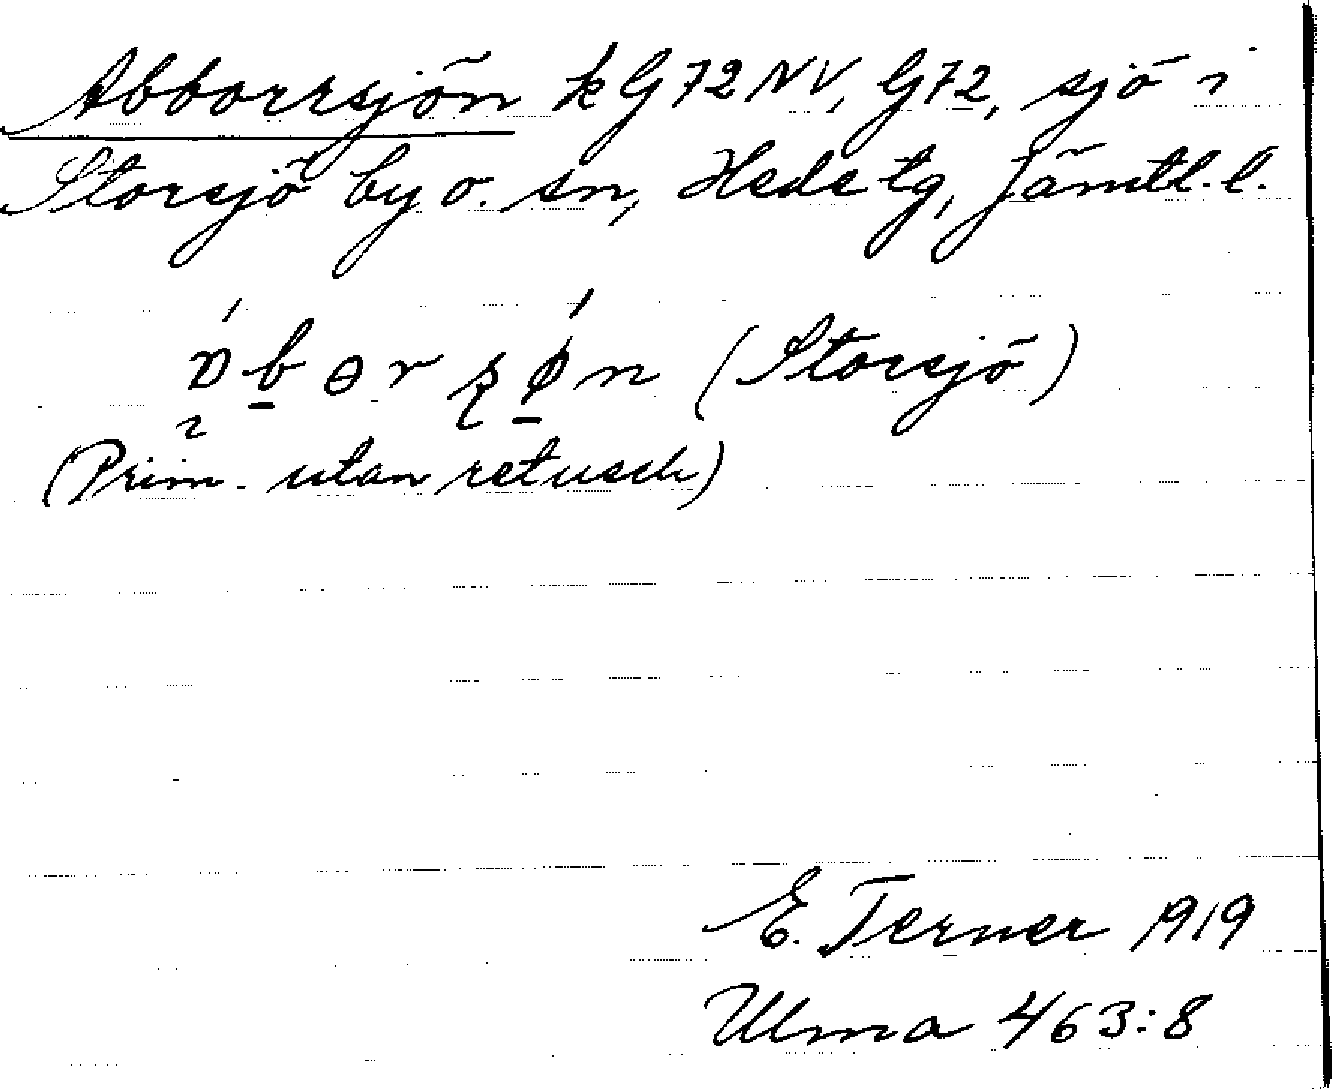 Abborrsjön k G72NV, G72, sjö i
Storsjö by o. sn, Hede tg, Jämtl. l.
(Storsjö)
(Prim. utan retusch)
E. Terner 1919
Ulma 463:8